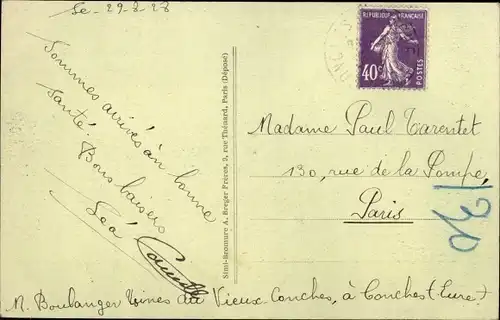 Le - 29-8-28
Sommes arrivés en bonne
santé.
Bons baisers
Léa
REPUBLIQUE FRANÇAISE
40c
POSTES
Simi-Bromure A. Breger Frères, 9, rue Thénard, Paris (Déposé)
Madame Paul Tarentet
130, rue de la Pompe
Paris
130
M. Boulanger Usines du Vieux-Conches, à Conches (Eure)